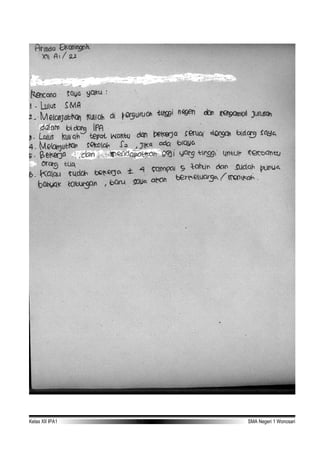 Arinda Ekaningah
XII A1 / 22
Rencana saya yaitu :
1. Lulus SMA
2. Melanjutkan kuliah di perguruan tinggi negeri dan mengambil jurusan
dalam bidang IPA
3. Lulus kuliah tepat waktu dan bekerja sesuai dengan bidang saya
4. Melanjutkan sekolah S2, jika ada biaya
5. Bekerja dan mendapatkan gaji yang tinggi untuk membantu
orang tua
6. Kalau sudah bekerja ± 4 sampai 5 tahun dan sudah punya
banyak tabungan, baru saya akan berkeluarga / menikah.
Kelas XII IPA1
SMA Negeri 1 Wonosari